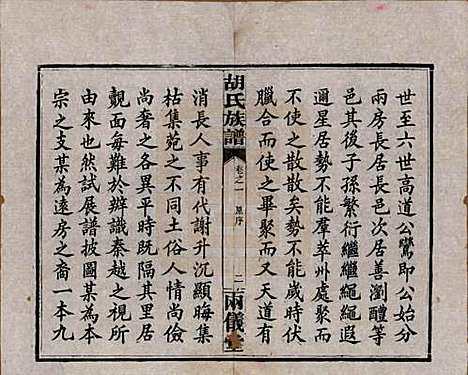 世至六世高道公鸞即公始分
兩房長居長邑次居善瀏醴等
邑其後子孫繁衍繼繼繩繩遐
邇星居勢不能群萃州處聚而
不使之散散矣勢不能歲時伏
臘合而使之畢聚而又天道有
胡氏族譜 卷之一 原序 二 兩儀堂
消長人事有代謝升沉顯晦集
枯集菀之不同土俗人情尚儉
尚奢之各異平時既隔其里居
覿面每難於辨識秦越之視所
由來也然試展譜披圖某為本
宗之支某為遠房之裔一本九